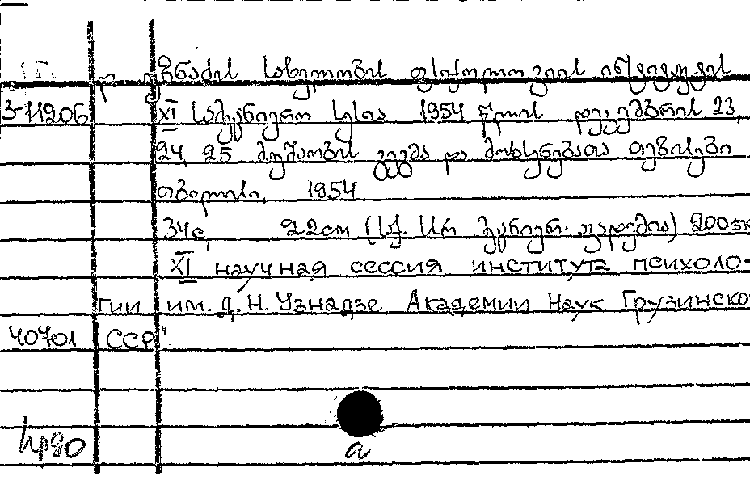 დ. უზნაძის სახელობის ფსიქოლოგიის ინსტიტუტის
3-11206 XI სამეცნიერო სესია 1954 წლის დეკემბრის 23,
24, 25 მუშაობის გეგმა და მოხსენებათა თეზისები
თბილისი, 1954
34с. 22см (საქ. სსრ მეცნიერ. აკადემია) 200экз
XI научная сессия института психоло-
гии им. Д. Н. Узнадзе Академии Наук Грузинско
40701 ССР"
4р80
а